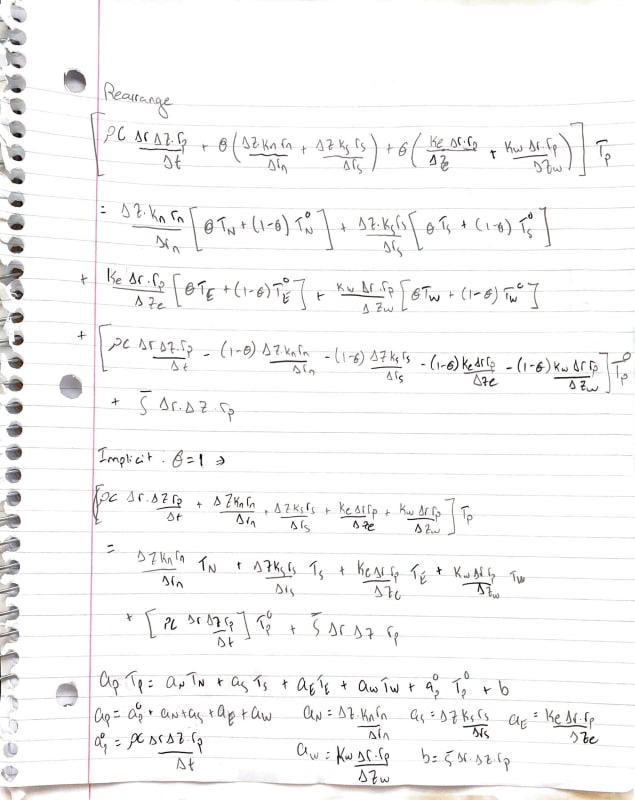 Rearrange
[ρC Δr Δz·rp/Δt + θ(Δz·kn rn/Δrn + Δz ks rs/Δrs) + θ(ke Δr·rp/Δze + kw Δr·rp/Δzw)] Tp
= Δz·kn rn/Δrn [θTN + (1-θ) TN⁰] + Δz·ks rs/Δrs [θTs + (1-θ) Ts⁰]
+ ke Δr·rp/Δze [θTE + (1-θ)TE⁰] + kw Δr·rp/Δzw [θTw + (1-θ) Tw⁰]
+ [ρc Δr Δz·rp/Δt - (1-θ) Δz·kn rn/Δrn - (1-θ) Δz ks rs/Δrs - (1-θ) ke Δr rp/Δze - (1-θ) kw Δr rp/Δzw] Tp⁰
+ S̄ Δr·Δz·rp
Implicit. θ=1 ⇒
[ρc Δr·Δz rp/Δt + Δz kn rn/Δrn + Δz ks rs/Δrs + ke Δr rp/Δze + kw Δr rp/Δzw] Tp
= Δz kn rn/Δrn TN + Δz ks rs/Δrs Ts + ke Δr rp/Δze TE + kw Δr rp/Δzw Tw
+ [ρc Δr Δz rp/Δt] Tp⁰ + S̄ Δr Δz rp
ap Tp = aN TN + as Ts + aE TE + aw Tw + ap⁰ Tp⁰ + b
ap = ap⁰ + aN + as + aE + aw aN = Δz·kn rn/Δrn as = Δz ks rs/Δrs aE = ke Δr·rp/Δze
ap⁰ = ρc Δr Δz·rp/Δt aw = kw Δr·rp/Δzw b = S̄ Δr·Δz·rp